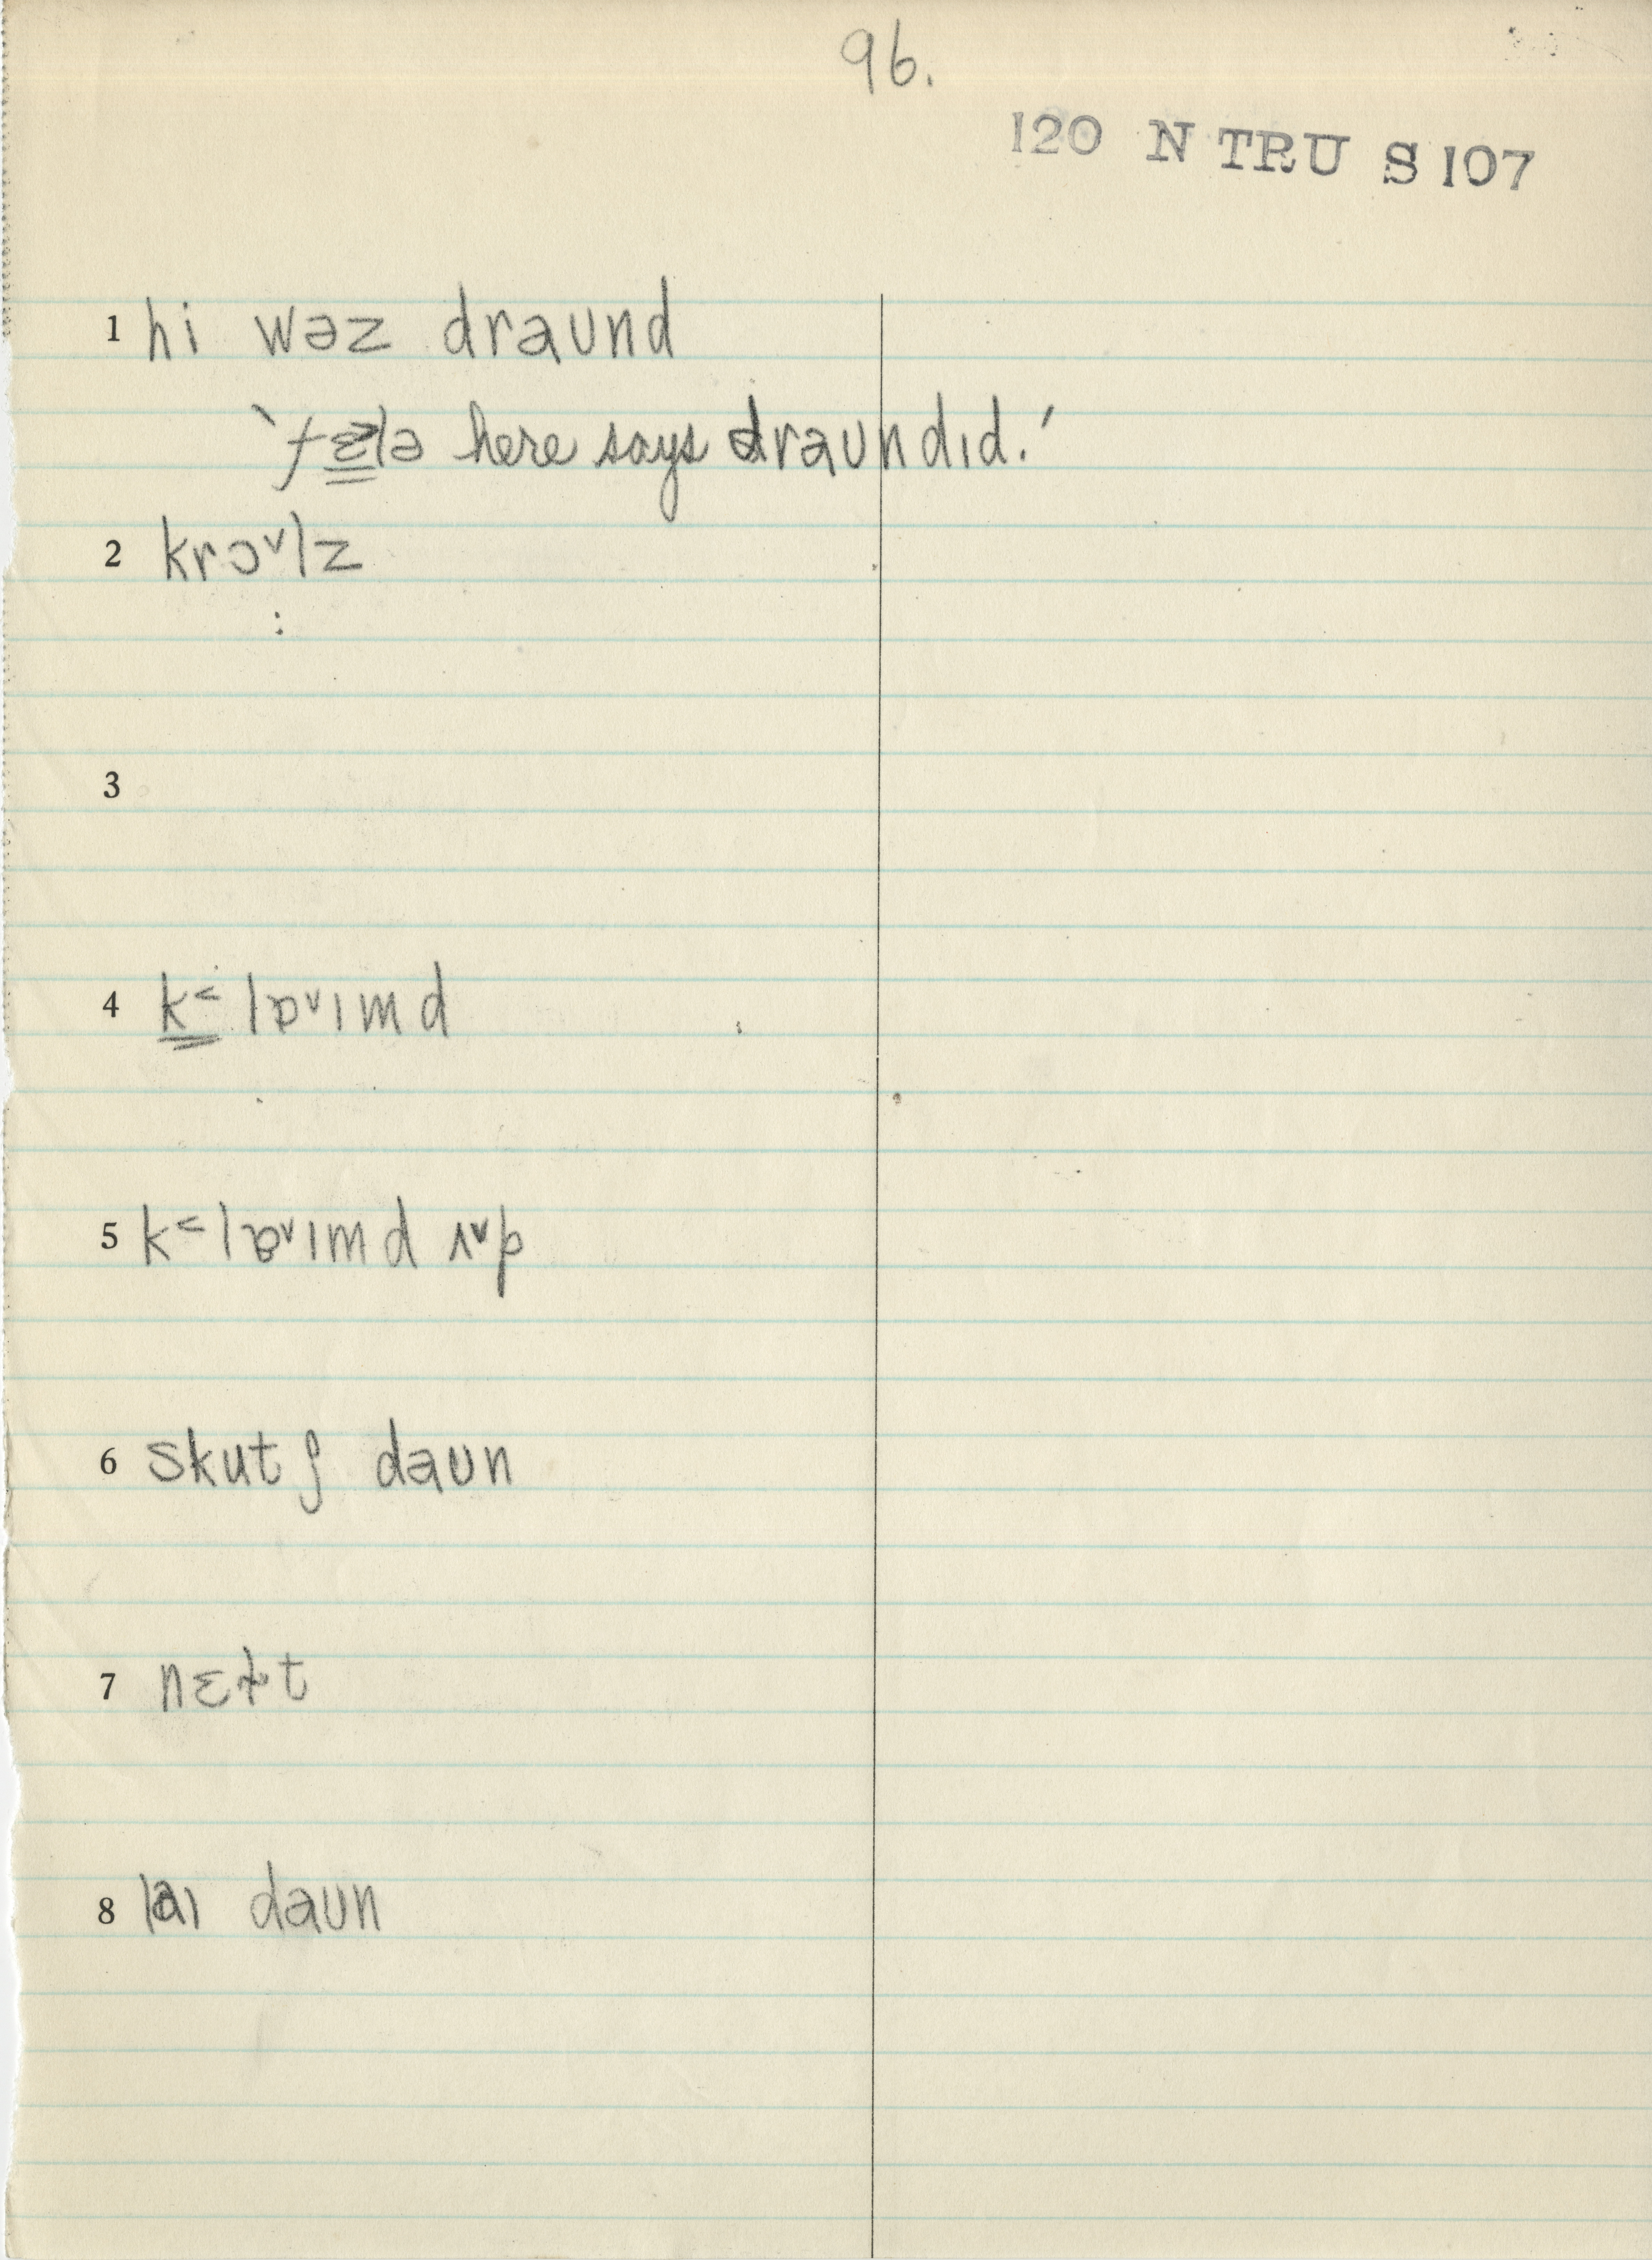 96.
120 N TRU S 107
1 hi wəz draund
'fɛlə here says draundɪd.'
2 krɔ˅lz
3
4 k˂lɒ˅ɪmd
5 k˂lɒ˅ɪmd ʌ˅p
6 skutʃ daun
7 nɛɫt
8 laɪ daun